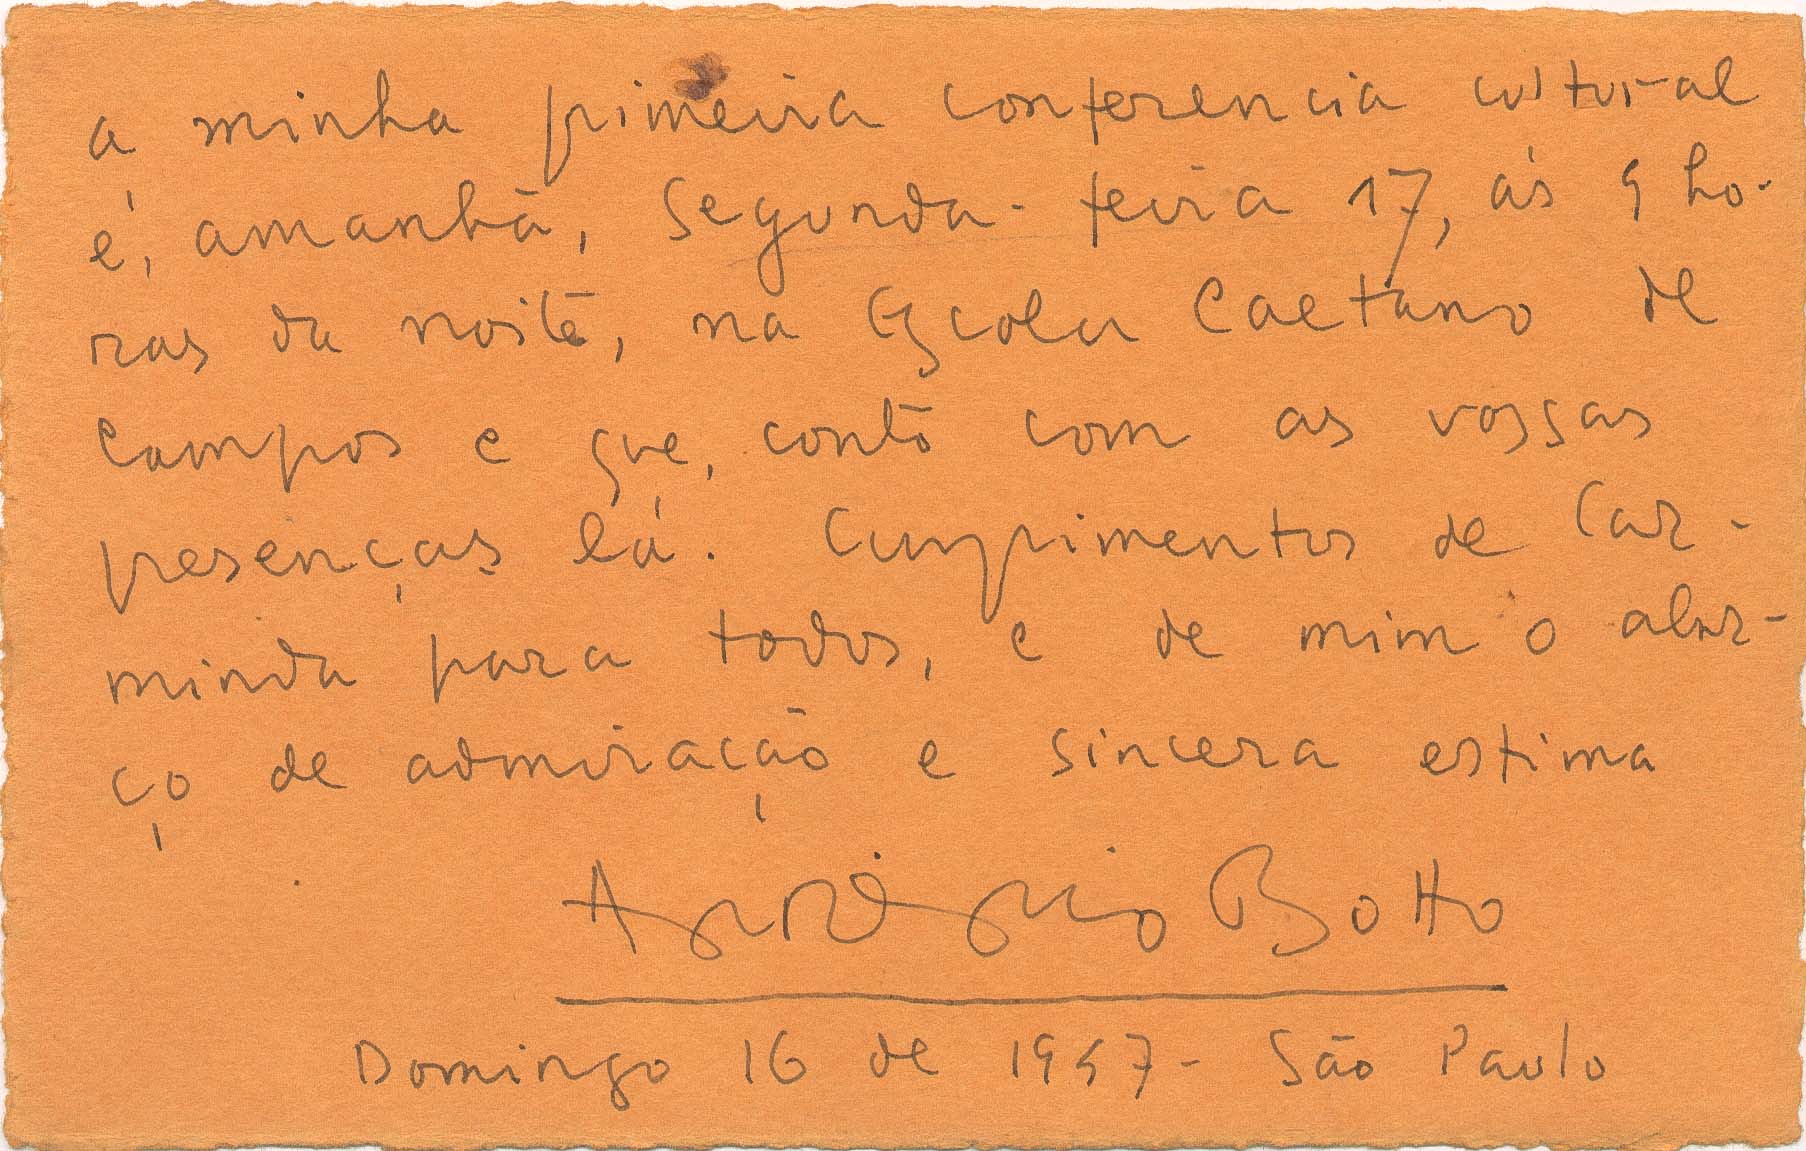 a minha primeira conferencia cultural
é, amanhã, Segunda-feira 17, ás 9 ho-
ras da noite, na Escola Caetano de
Campos e que, conto com as vossas
presenças lá. Cumprimentos de Car-
minda para todos, e de mim o abra-
ço de admiração e sincera estima
António Botto
Domingo 16 de 1947 - São Paulo